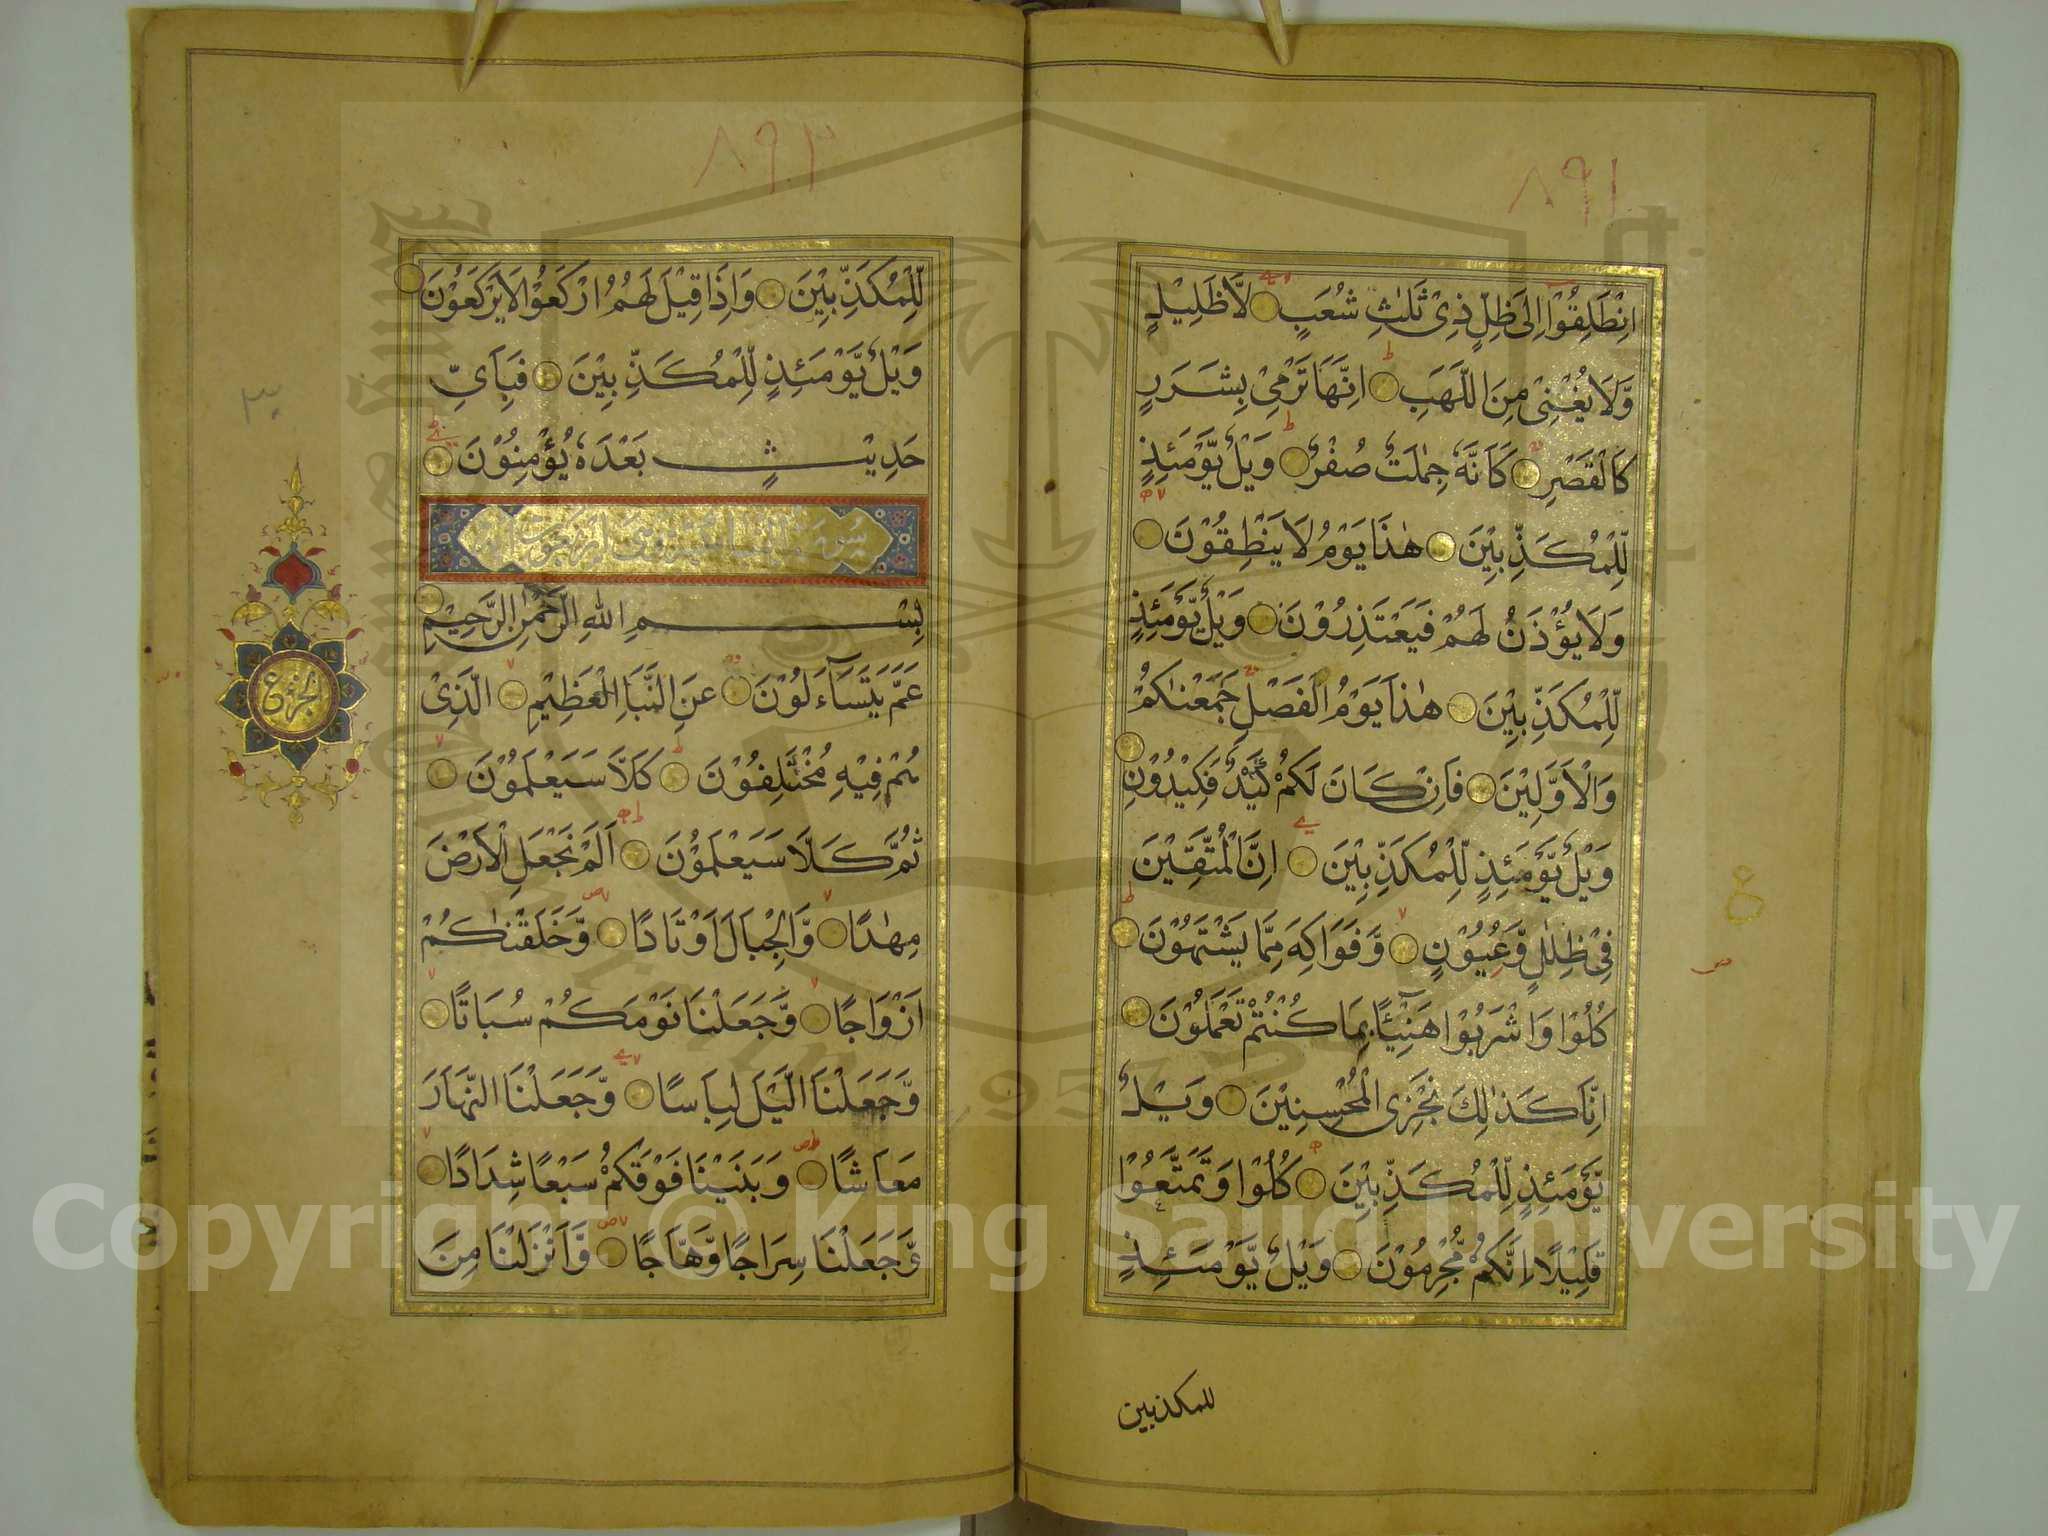 ٨٩١
اِنْطَلِقُوْا اِلٰى ظِلٍّ ذِىْ ثَلٰثِ شُعَبٍ لَّا ظَلِيْلٍ
وَّلَا يُغْنِىْ مِنَ اللَّهَبِ اِنَّهَا تَرْمِىْ بِشَرَرٍ
كَالْقَصْرِ كَاَنَّهٗ جِمٰلَتٌ صُفْرٌ وَيْلٌ يَّوْمَئِذٍ
لِّلْمُكَذِّبِيْنَ هٰذَا يَوْمُ لَا يَنْطِقُوْنَ
وَلَا يُؤْذَنُ لَهُمْ فَيَعْتَذِرُوْنَ وَيْلٌ يَّوْمَئِذٍ
لِّلْمُكَذِّبِيْنَ هٰذَا يَوْمُ الْفَصْلِ جَمَعْنٰكُمْ
وَالْاَوَّلِيْنَ فَاِنْ كَانَ لَكُمْ كَيْدٌ فَكِيْدُوْنِ
وَيْلٌ يَّوْمَئِذٍ لِّلْمُكَذِّبِيْنَ اِنَّ الْمُتَّقِيْنَ
فِىْ ظِلٰلٍ وَّعُيُوْنٍ وَّفَوَاكِهَ مِمَّا يَشْتَهُوْنَ
كُلُوْا وَاشْرَبُوْا هَنِيْٓئًا بِمَا كُنْتُمْ تَعْمَلُوْنَ
اِنَّا كَذٰلِكَ نَجْزِى الْمُحْسِنِيْنَ وَيْلٌ
يَّوْمَئِذٍ لِّلْمُكَذِّبِيْنَ كُلُوْا وَتَمَتَّعُوْا
قَلِيْلًا اِنَّكُمْ مُّجْرِمُوْنَ وَيْلٌ يَّوْمَئِذٍ
للمكذبين
٨٩٢
لِّلْمُكَذِّبِيْنَ وَاِذَا قِيْلَ لَهُمُ ارْكَعُوْا لَا يَرْكَعُوْنَ
وَيْلٌ يَّوْمَئِذٍ لِّلْمُكَذِّبِيْنَ فَبِاَىِّ
حَدِيْثٍ بَعْدَهٗ يُؤْمِنُوْنَ
بِسْمِ اللّٰهِ الرَّحْمٰنِ الرَّحِيْمِ
عَمَّ يَتَسَآءَلُوْنَ عَنِ النَّبَاِ الْعَظِيْمِ الَّذِىْ
هُمْ فِيْهِ مُخْتَلِفُوْنَ كَلَّا سَيَعْلَمُوْنَ
ثُمَّ كَلَّا سَيَعْلَمُوْنَ اَلَمْ نَجْعَلِ الْاَرْضَ
مِهٰدًا وَّالْجِبَالَ اَوْتَادًا وَّخَلَقْنٰكُمْ
اَزْوَاجًا وَّجَعَلْنَا نَوْمَكُمْ سُبَاتًا
وَّجَعَلْنَا الَّيْلَ لِبَاسًا وَّجَعَلْنَا النَّهَارَ
مَعَاشًا وَبَنَيْنَا فَوْقَكُمْ سَبْعًا شِدَادًا
وَّجَعَلْنَا سِرَاجًا وَّهَّاجًا وَّاَنْزَلْنَا مِنَ
الجزء
٣٠
Copyright © King Saud University